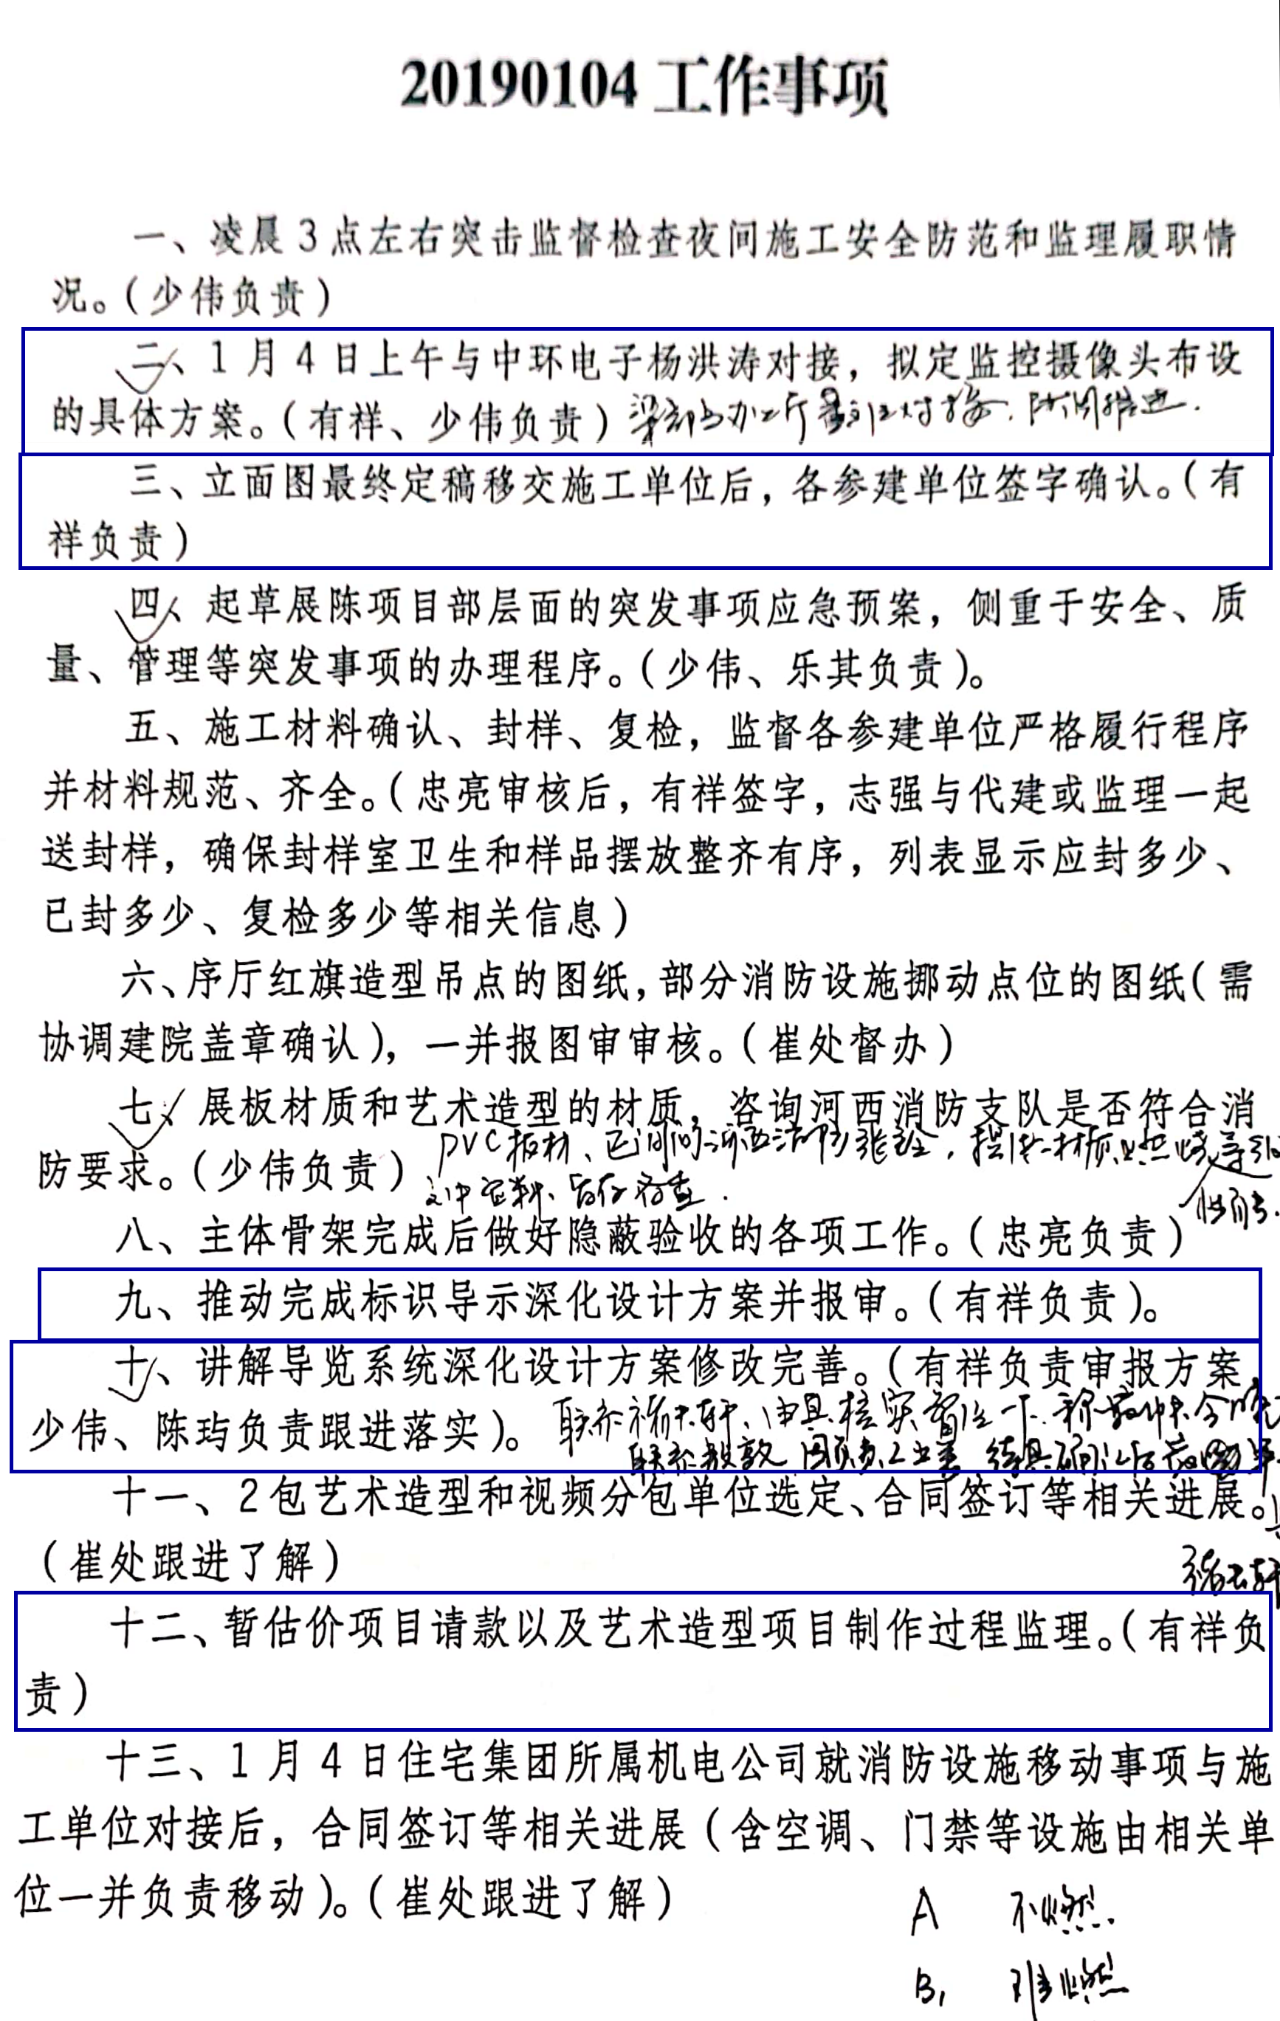 20190104 工作事项
一、凌晨3点左右突击监督检查夜间施工安全防范和监理履职情
况。(少伟负责)
二、1月4日上午与中环电子杨洪涛对接，拟定监控摄像头布设
的具体方案。(有祥、少伟负责)
三、立面图最终定稿移交施工单位后，各参建单位签字确认。(有
祥负责)
四、起草展陈项目部层面的突发事项应急预案，侧重于安全、质
量、管理等突发事项的办理程序。(少伟、乐其负责)。
五、施工材料确认、封样、复检，监督各参建单位严格履行程序
并材料规范、齐全。(忠亮审核后，有祥签字，志强与代建或监理一起
送封样，确保封样室卫生和样品摆放整齐有序，列表显示应封多少、
已封多少、复检多少等相关信息)
六、序厅红旗造型吊点的图纸，部分消防设施挪动点位的图纸(需
协调建院盖章确认)，一并报图审审核。(崔处督办)
七、展板材质和艺术造型的材质，咨询河西消防支队是否符合消
防要求。(少伟负责) PVC板材、
八、主体骨架完成后做好隐蔽验收的各项工作。(忠亮负责) 性能.
九、推动完成标识导示深化设计方案并报审。(有祥负责)。
十、讲解导览系统深化设计方案修改完善。(有祥负责审报方案
少伟、陈玙负责跟进落实)。
十一、2包艺术造型和视频分包单位选定、合同签订等相关进展。
(崔处跟进了解)
十二、暂估价项目请款以及艺术造型项目制作过程监理。(有祥负
责)
十三、1月4日住宅集团所属机电公司就消防设施移动事项与施
工单位对接后，合同签订等相关进展(含空调、门禁等设施由相关单
位一并负责移动)。(崔处跟进了解)
A 不燃.
B1 难燃